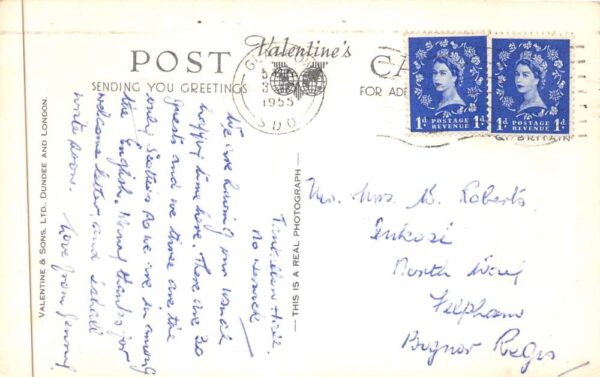 POST CA
Valentine's
SENDING YOU GREETINGS
FOR ADE
1955
1D POSTAGE REVENUE 1D
1D POSTAGE REVENUE 1D
G. BRITAIN
VALENTINE & SONS, LTD., DUNDEE AND LONDON.
— THIS IS A REAL PHOTOGRAPH —
We are having our usual
happy time here. There are 30
guests and we three are the
only Scotties so we are in among
the English. Many thanks for
welcome letter, and I shall
write soon. Love from Jenny
Mr. Mrs. B. Roberts
Inkosi
North Way
Felpham
Bognor Regis